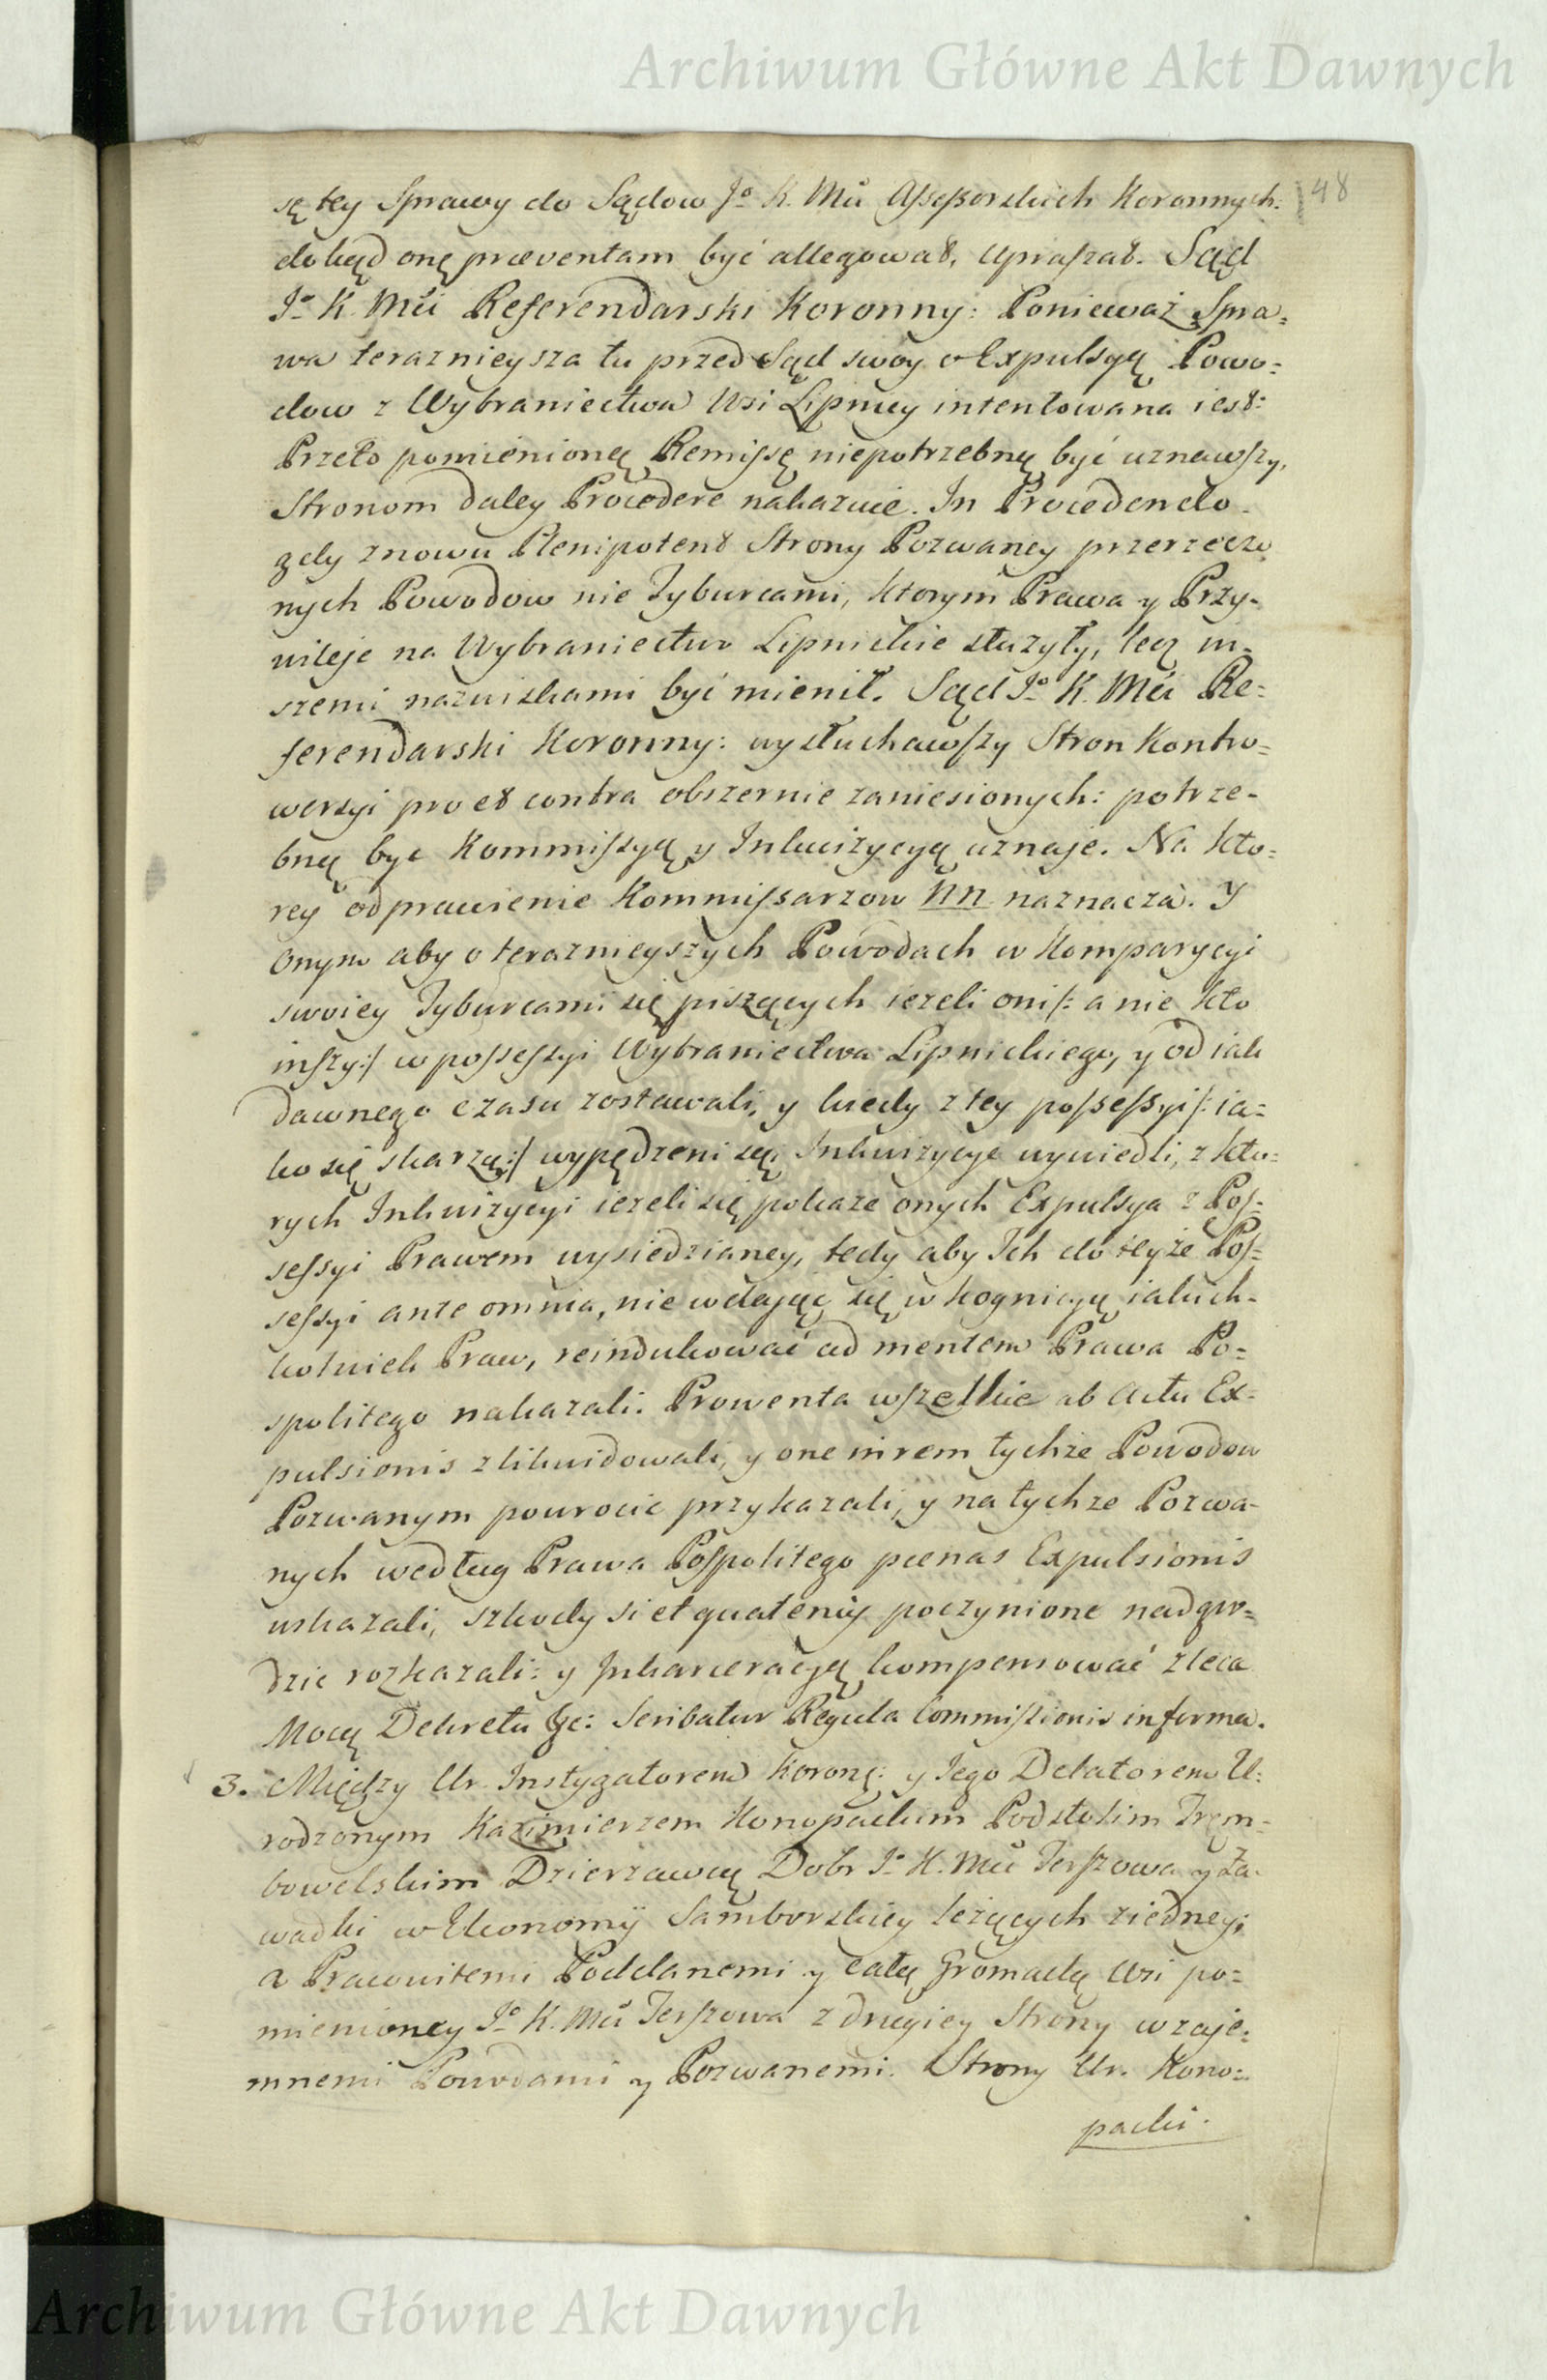 Archiwum Główne Akt Dawnych
148
sę tey Sprawy do Sądow Jº K. Mci Assessorskich Koronnych.
dokąd onę præventam być allegował, upraszał. Sąd
Jº K. Mci Referendarski Koronny: Ponieważ Spra=
wa teraznieysza tu przed Sąd swoy o Expulsyą Powo=
dow z Wybraniectwa Wsi Lipnicy intentowana iest:
Przeto pomienioną Remissę niepotrzebną być uznawszy,
Stronom daley Procedere nakazuie. In Procedendo
gdy znowu Plenipotent Strony Pozwaney przerzeczo
nych Powodow nie Tyburcami, ktorym Prawa y Przy-
wileje na Wybraniectwo Lipnickie służyły, lecz in-
szemi nazwiskami być mienił. Sąd Jº K. Mci Re=
ferendarski Koronny: wysłuchawszy Stron Kontro=
wersyi pro et contra obszernie zaniesionych: potrze-
bną być Kommissyą y Inkwizycyą uznaje. Na kto=
rey odprawienie Kommissarzow NN naznacza. Y
onym aby o teraznieyszych Powodach w Komparycyi
swoiey Tyburcami się piszących iezeli oni /: a nie kto
inszy :/ w possessyi Wybraniectwa Lipnickiego, y od iak
dawnego czasu zostawali, y kiedy z tey possessyi /: ia=
ko się skarzą :/ wypędzeni są; Inkwizycye wywiedli, z kto=
rych Inkwizycyi iezeli się pokaze onych Expulsya z Pos=
sessyi Prawem wysiedzianey, tedy aby Ich do teyże Pos=
sessyi ante omnia, nie wdając się w kognicyą iakich-
kolwiek Praw, reindukować ad mentem Prawa Po=
spolitego nakazali. Prowenta wszelkie ab Actu Ex=
pulsionis zlikwidowali, y one in rem tychże Powodow
Pozwanym powrocic przykazali, y na tychze Pozwa-
nych według Prawa Pospolitego pœnas Expulsionis
wskazali, szkody si et quatenus poczynione nadgro=
dzic rozkazali: y Inkarceracyą kompensować zleca
Mocą Dekretu &c: Scribatur Regula Commissionis in forma.
3. Między Ur. Instygatorem Koronę: y Jego Delatorem U:
rodzonym Kazimierzem Konopackim Podstolim Trem=
bowelskim Dzierzawcą Dobr Jº K. Mci Terszowa y Za-
wadki w Ekonomij Samborskiey leżących z iedney;
a Pracowitemi Poddanemi y całą Gromadą Wsi po=
mienioney Jº K. Mci Terszowa z drugiey Strony wzaje=
mnemi Powodami y Pozwanemi. Strony Ur. Kono=
packi.
Archiwum Główne Akt Dawnych